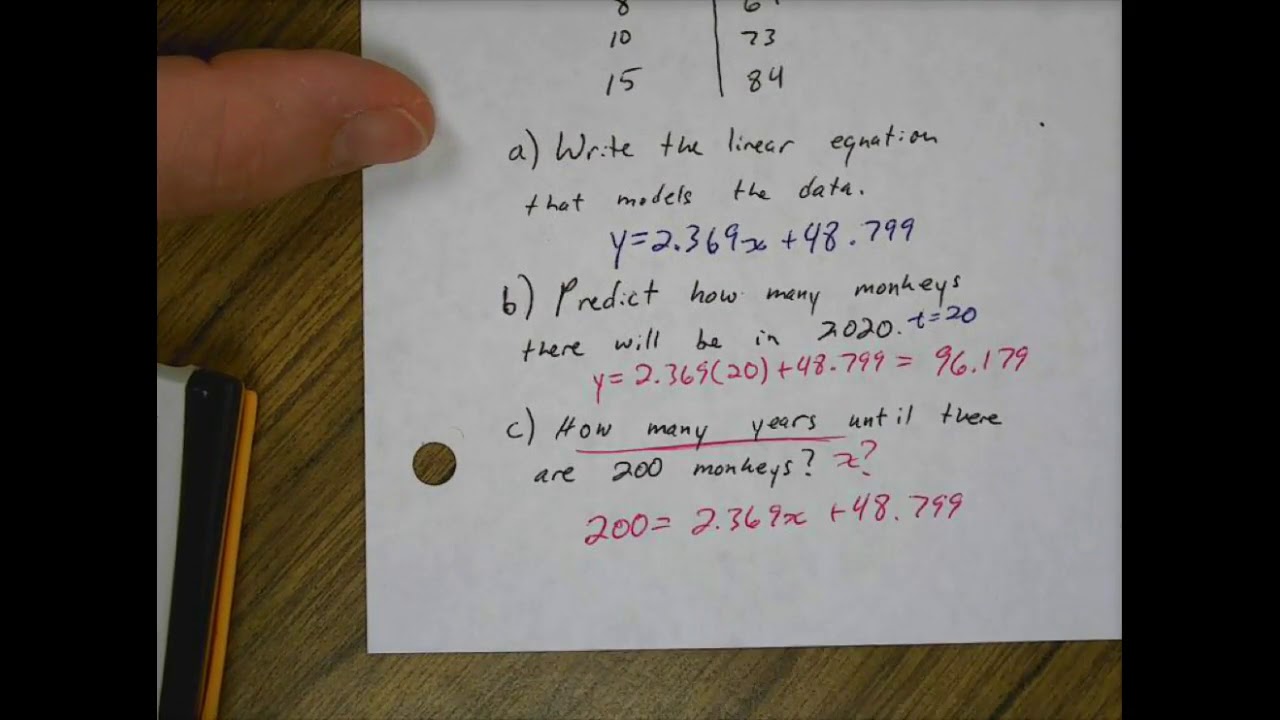 8
10 73
15 84
a) Write the linear equation
that models the data.
y=2.369x+48.799
b) Predict how many monkeys
there will be in 2020. t=20
y=2.369(20)+48.799= 96.179
c) How many years until there
are 200 monkeys? x?
200= 2.369x +48.799